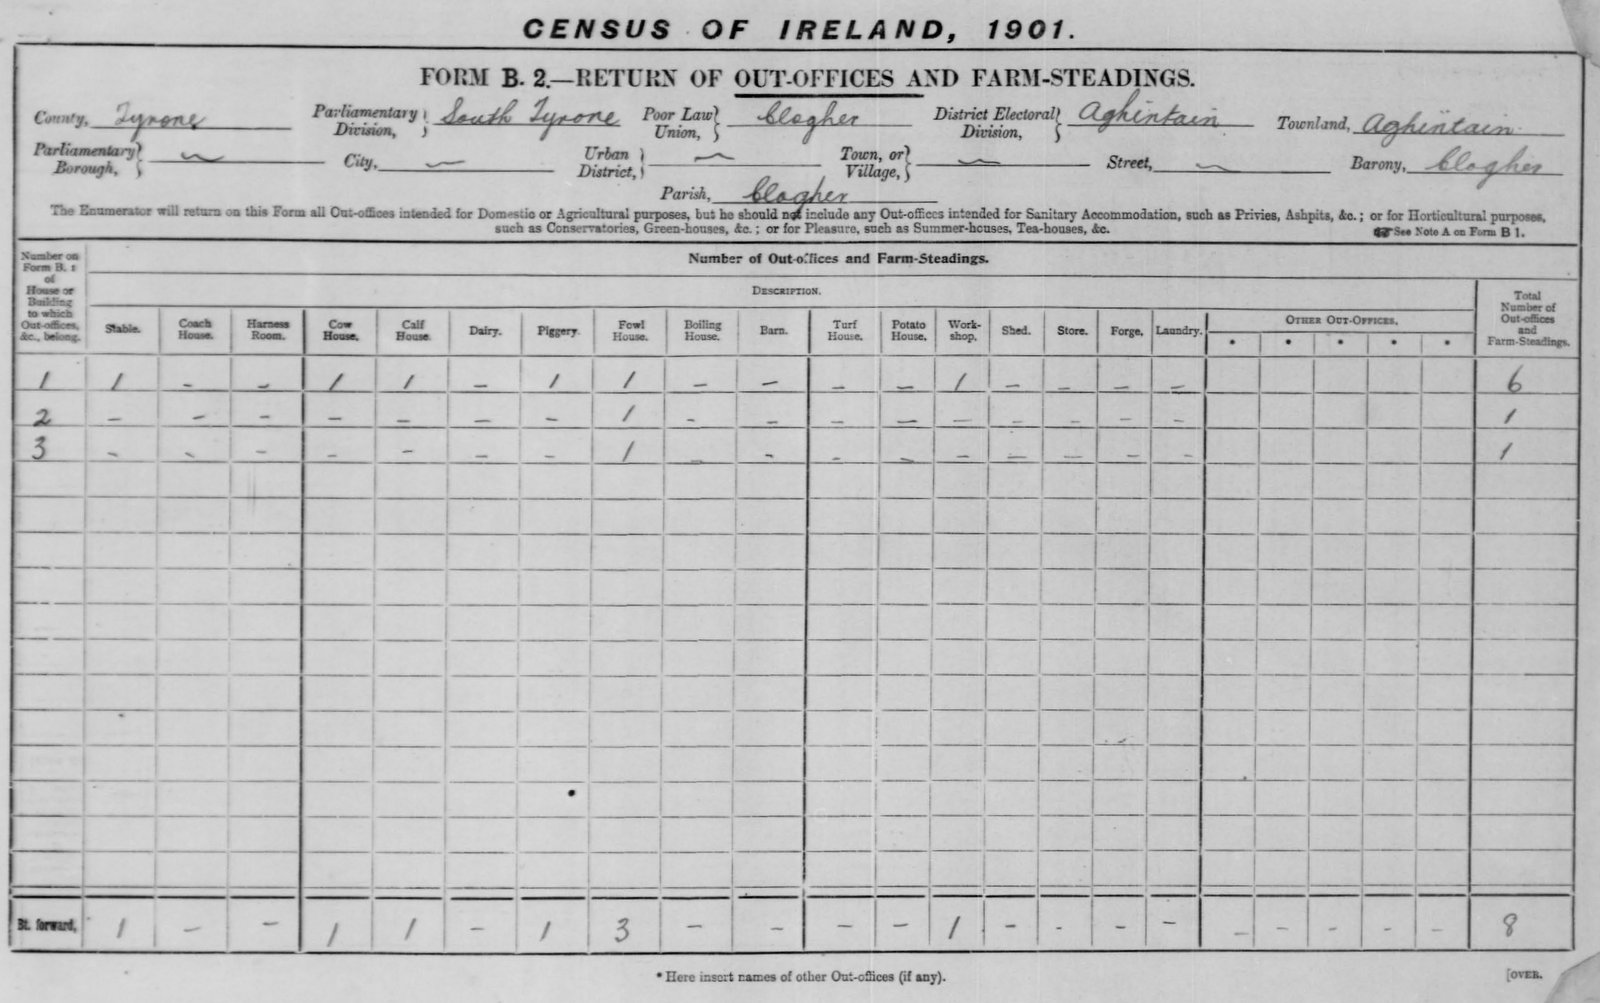 CENSUS OF IRELAND, 1901.
FORM B. 2.—RETURN OF OUT-OFFICES AND FARM-STEADINGS.
County, Tyrone Parliamentary Division, South Tyrone Poor Law Union, Clogher District Electoral Division, Aghintain Townland, Aghintain
Parliamentary Borough, ~ City, ~ Urban District, ~ Town, or Village, ~ Street, ~ Barony, Clogher
Parish, Clogher
The Enumerator will return on this Form all Out-offices intended for Domestic or Agricultural purposes, but he should not include any Out-offices intended for Sanitary Accommodation, such as Privies, Ashpits, &c.; or for Horticultural purposes,
such as Conservatories, Green-houses, &c.; or for Pleasure, such as Summer-houses, Tea-houses, &c. ☞ See Note A on Form B 1.
Number on Form B. 1 of House or Building to which Out-offices, &c., belong.
Number of Out-offices and Farm-Steadings.
DESCRIPTION.
Stable. Coach House. Harness Room. Cow House. Calf House. Dairy. Piggery. Fowl House. Boiling House. Barn. Turf House. Potato House. Work-shop. Shed. Store. Forge. Laundry. OTHER OUT-OFFICES. * * * * * Total Number of Out-offices and Farm-Steadings.
1 1 - - 1 1 - 1 1 - - - - 1 - - - - 6
2 - - - - - - - 1 - - - - - - - - - 1
3 - - - - - - - 1 - - - - - - - - - 1
Bt. forward, 1 - - 1 1 - 1 3 - - - - 1 - - - - - - - - - 8
* Here insert names of other Out-offices (if any).
[OVER.